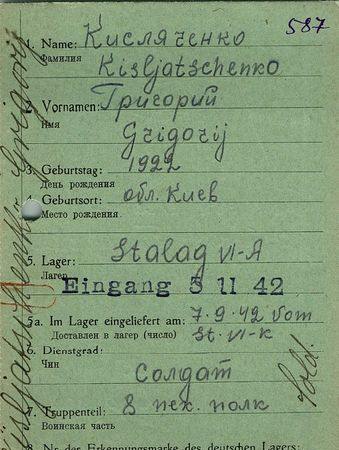 587
1. Name: Кисляченко
Фамилия
Kisljatschenko
2. Vornamen: Григорий
Имя
Grigorij
3. Geburtstag: 1922
День рождения
4. Geburtsort: обл. Киев
Место рождения
5. Lager: Stalag VI-A
Лагер
Eingang 5 11 42
5a. Im Lager eingeliefert am: 7.9.42 vom
Доставлен в лагер (число) St. VI-K
6. Dienstgrad:
Чин
Солдат
7. Truppenteil: 8 пех. полк
Воинская часть
8. Nr. der Erkennungsmarke des deutschen Lagers:
Kisljatschenko Grigorij
Sold.